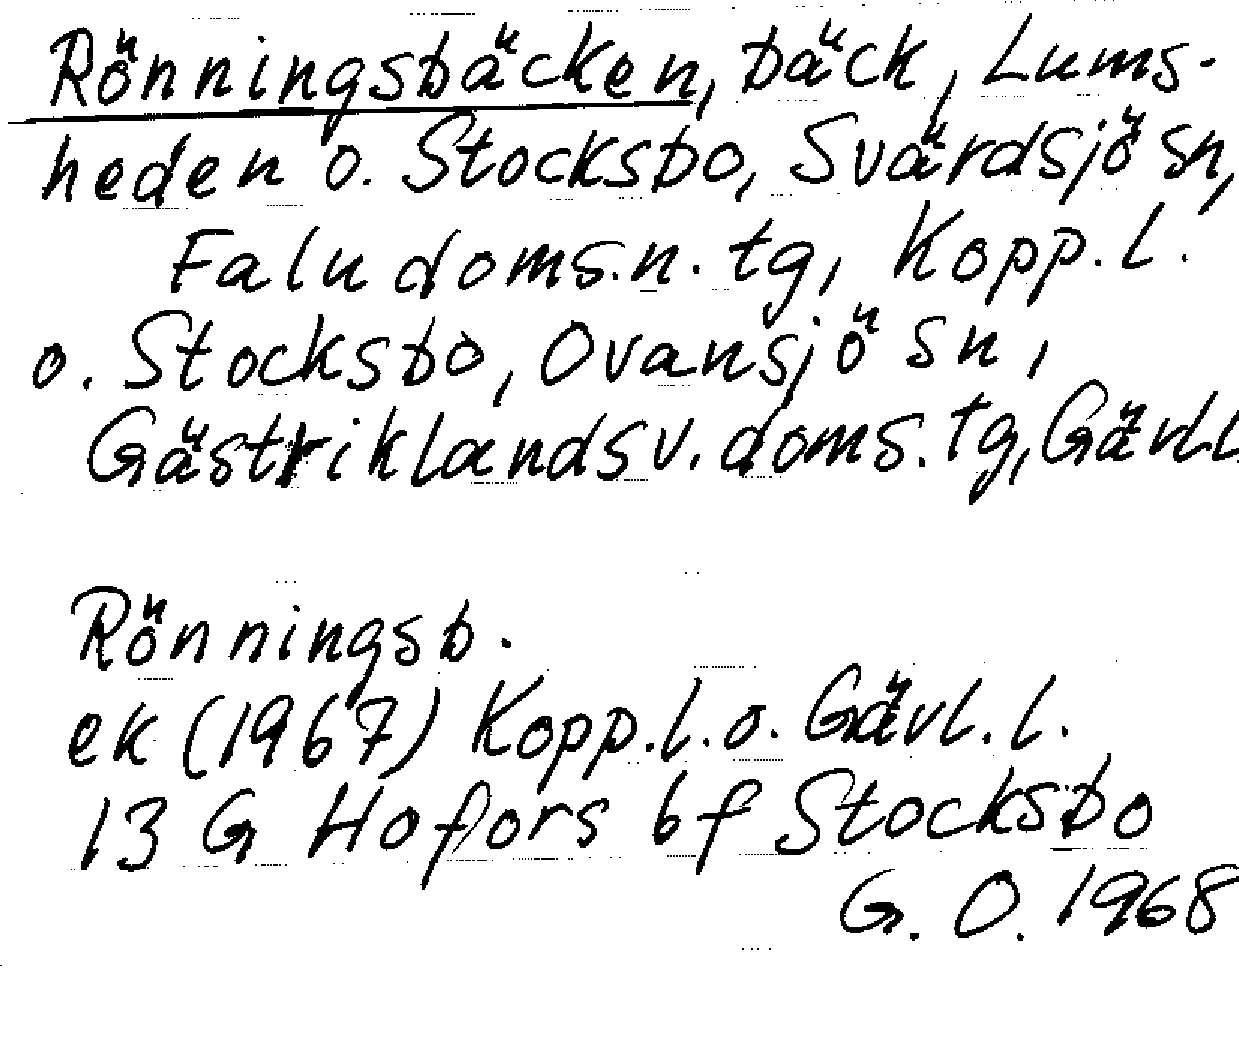 Rönningsbäcken, bäck, Lums-
heden o. Stocksbo, Svärdsjö sn,
Falu doms.n. tg, Kopp.l.
o. Stocksbo, Ovansjö sn,
Gästriklands v. doms. tg, Gävl.l.
Rönningsb.
ek (1967) Kopp.l. o. Gävl. l.
13 G Hofors 6f Stocksbo
G. O. 1968